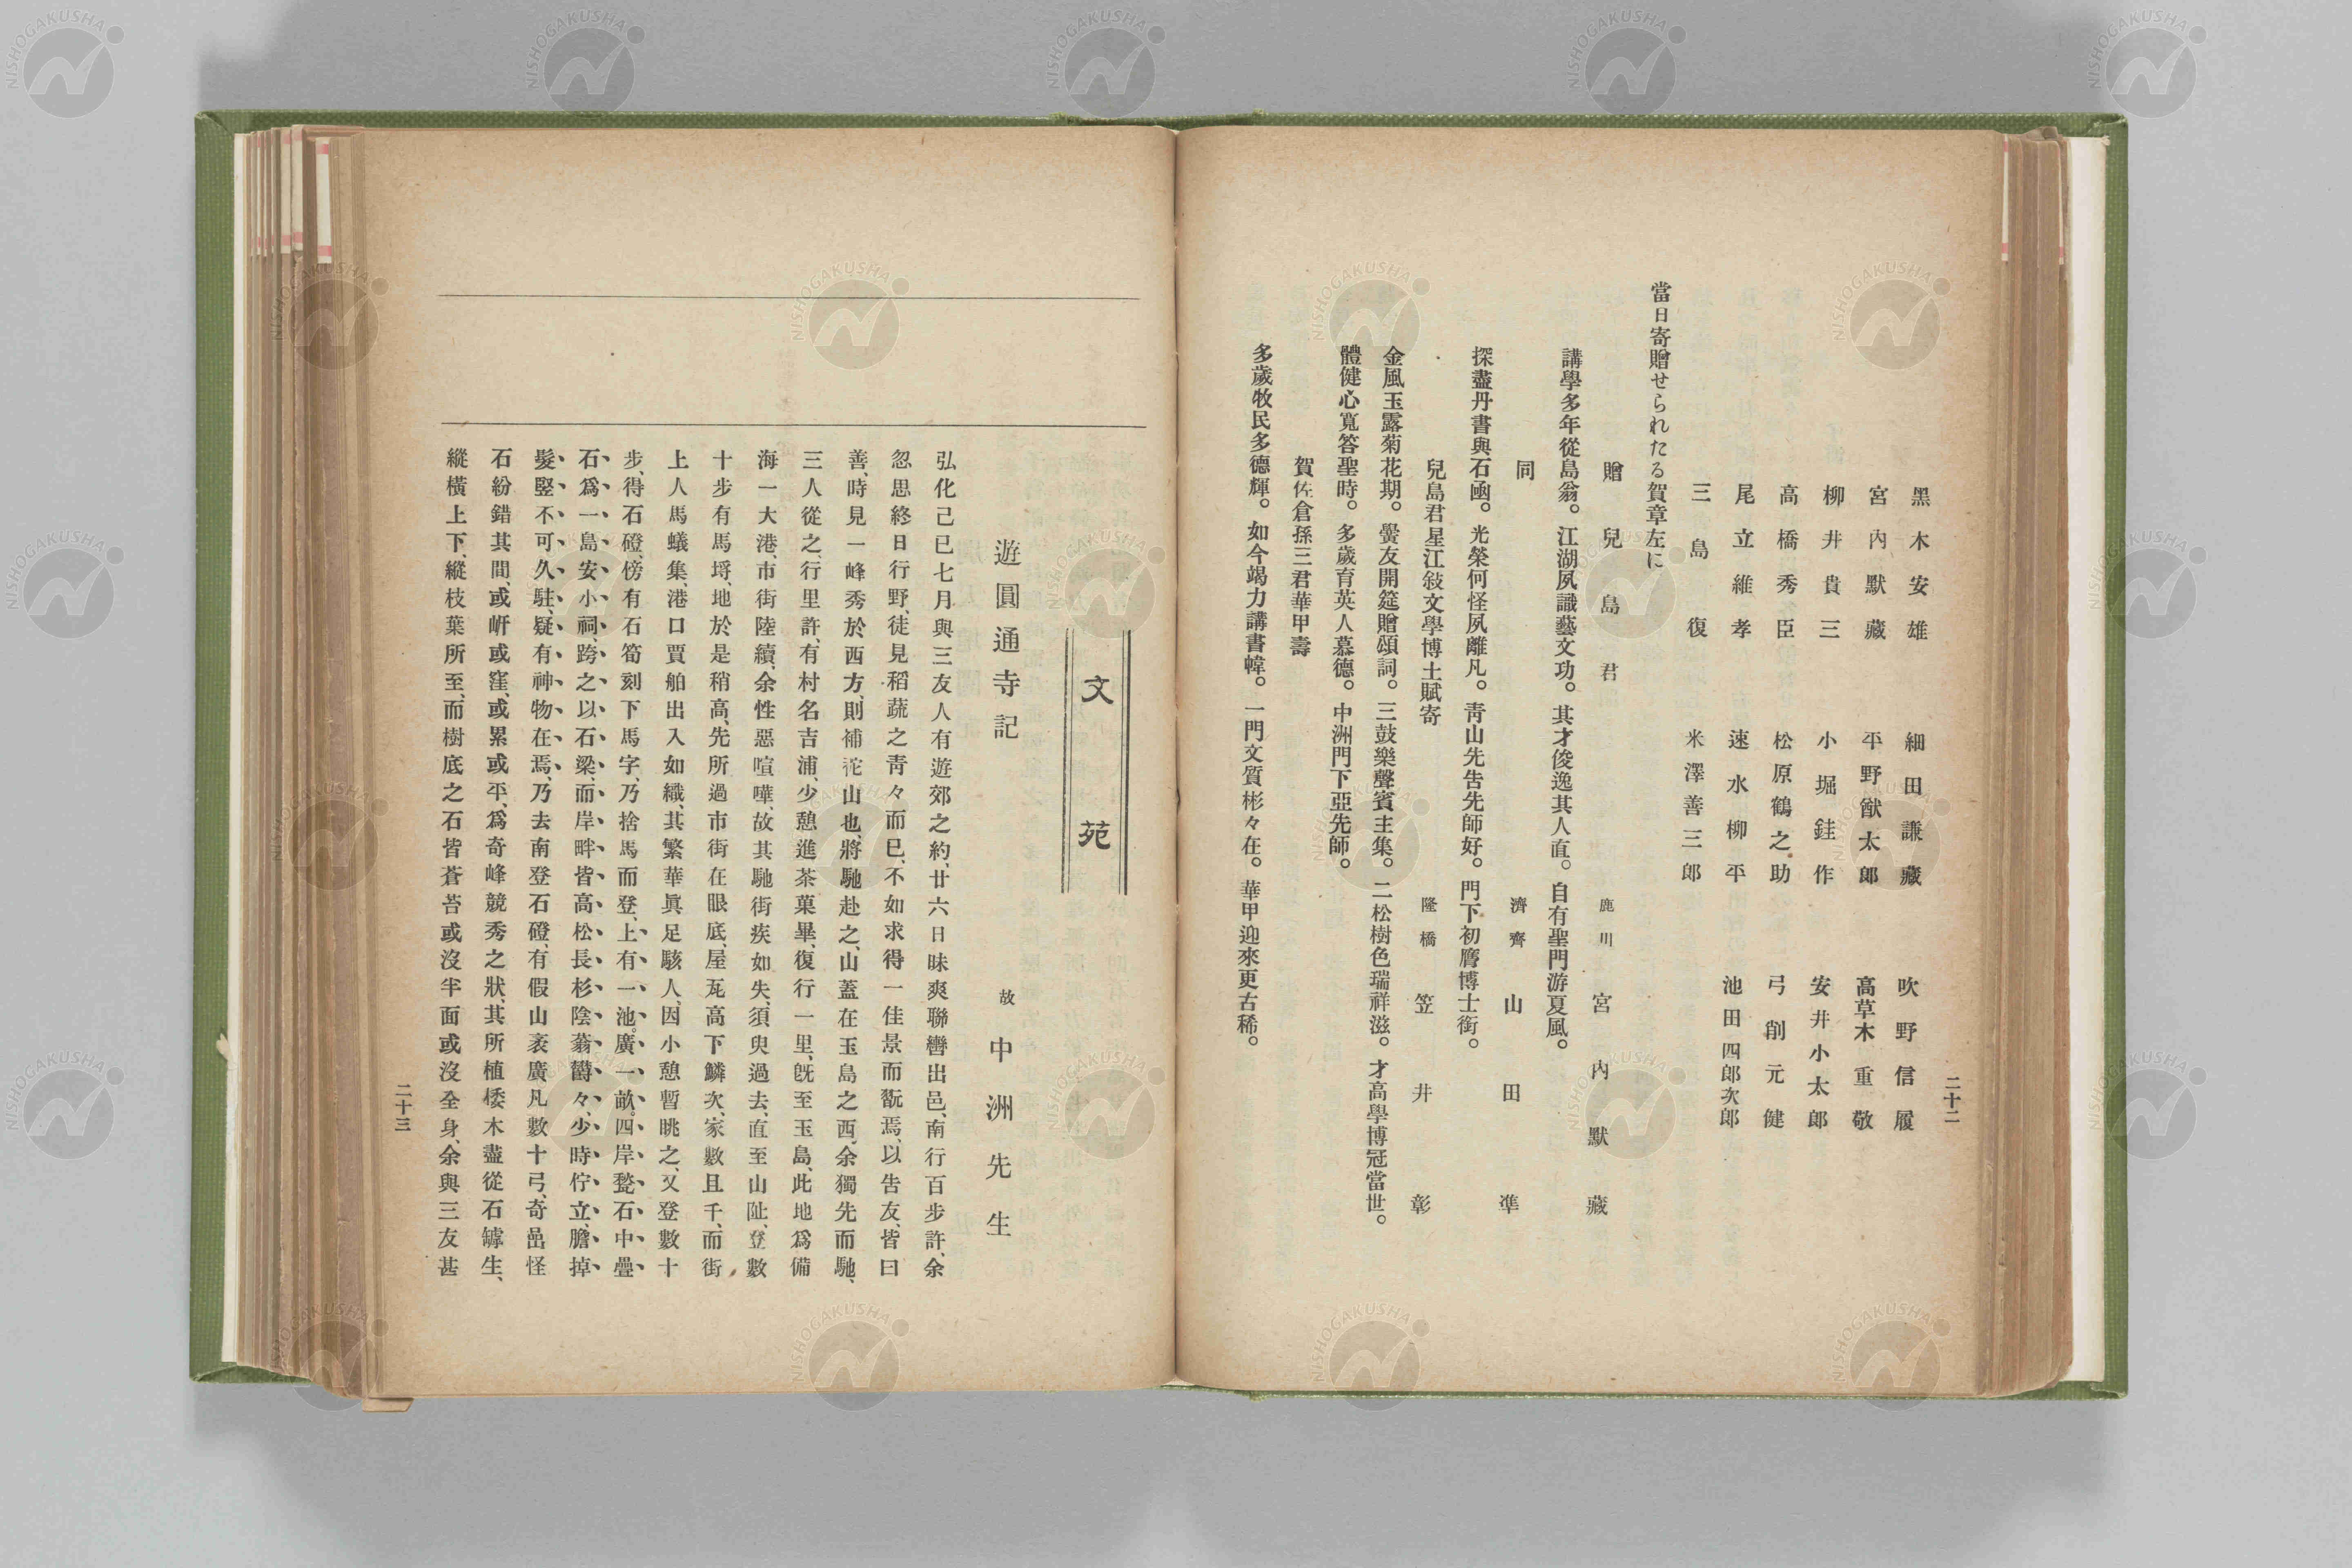 二十二
黑木安雄　細田謙藏　吹野信履
宮內默藏　平野猷太郞　高草木重敬
柳井貴三　小堀銈作　安井小太郞
高橋秀臣　松原鶴之助　弓削元健
尾立維孝　速水柳平　池田四郞次郞
三島復　米澤善三郞
當日寄贈せられたる賀章左に
贈兒島君　鹿川　宮內默藏
講學多年從島翁。江湖夙識藝文功。其才俊逸其人直。自有聖門游夏風。
同　濟齊　山田準
探盡丹書與石函。光榮何怪夙離凡。靑山先告先師好。門下初膺博士銜。
兒島君星江敍文學博士賦寄　隆橋　笠井彰
金風玉露菊花期。黌友開筵贈頌詞。三鼓樂聲賓主集。二松樹色瑞祥滋。才高學博冠當世。
體健心寬答聖時。多歲育英人慕德。中洲門下亞先師。
賀佐倉孫三君華甲壽
多歲牧民多德輝。如今竭力講書幃。一門文質彬々在。華甲迎來更古稀。
文苑
遊圓通寺記
故中洲先生
弘化己巳七月與三友人有遊郊之約、廿六日昧爽聯轡出邑、南行百步許、余
忽思終日行野、徒見稻蔬之靑々而已、不如求得一佳景而翫焉、以告友、皆曰
善、時見一峰秀於西方、則補陀山也、將馳赴之、山蓋在玉島之西、余獨先而馳、
三人從之、行里許、有村名吉浦、少憩進茶菓畢、復行一里、旣至玉島、此地爲備
海一大港、市街陸續、余性惡喧嘩、故其馳街疾如失、須臾過去、直至山阯、登數
十步有馬埓、地於是稍高、先所過市街在眼底、屋瓦高下鱗次、家數且千、而街
上人馬蟻集、港口賈舶出入如織、其繁華眞足駭人、因小憩暫眺之、又登數十
步、得石磴、傍有石筍刻下馬字、乃捨馬而登、上有一池。廣一畝。四岸甃石、中疊
石爲一島安小祠、跨之以石梁、而岸畔皆高松長杉陰蓊欝々、少時佇立、膽掉
髮竪不可久駐、疑有神物在焉、乃去南登石磴、有假山袤廣凡數十弓、奇嵒怪
石紛錯其間、或岍或窪、或累或平、爲奇峰競秀之狀、其所植矮木盡從石罅生、
縱橫上下、縱枝葉所至、而樹底之石皆蒼苔或沒半面或沒全身、余與三友甚
二十三
NISHOGAKUSHA